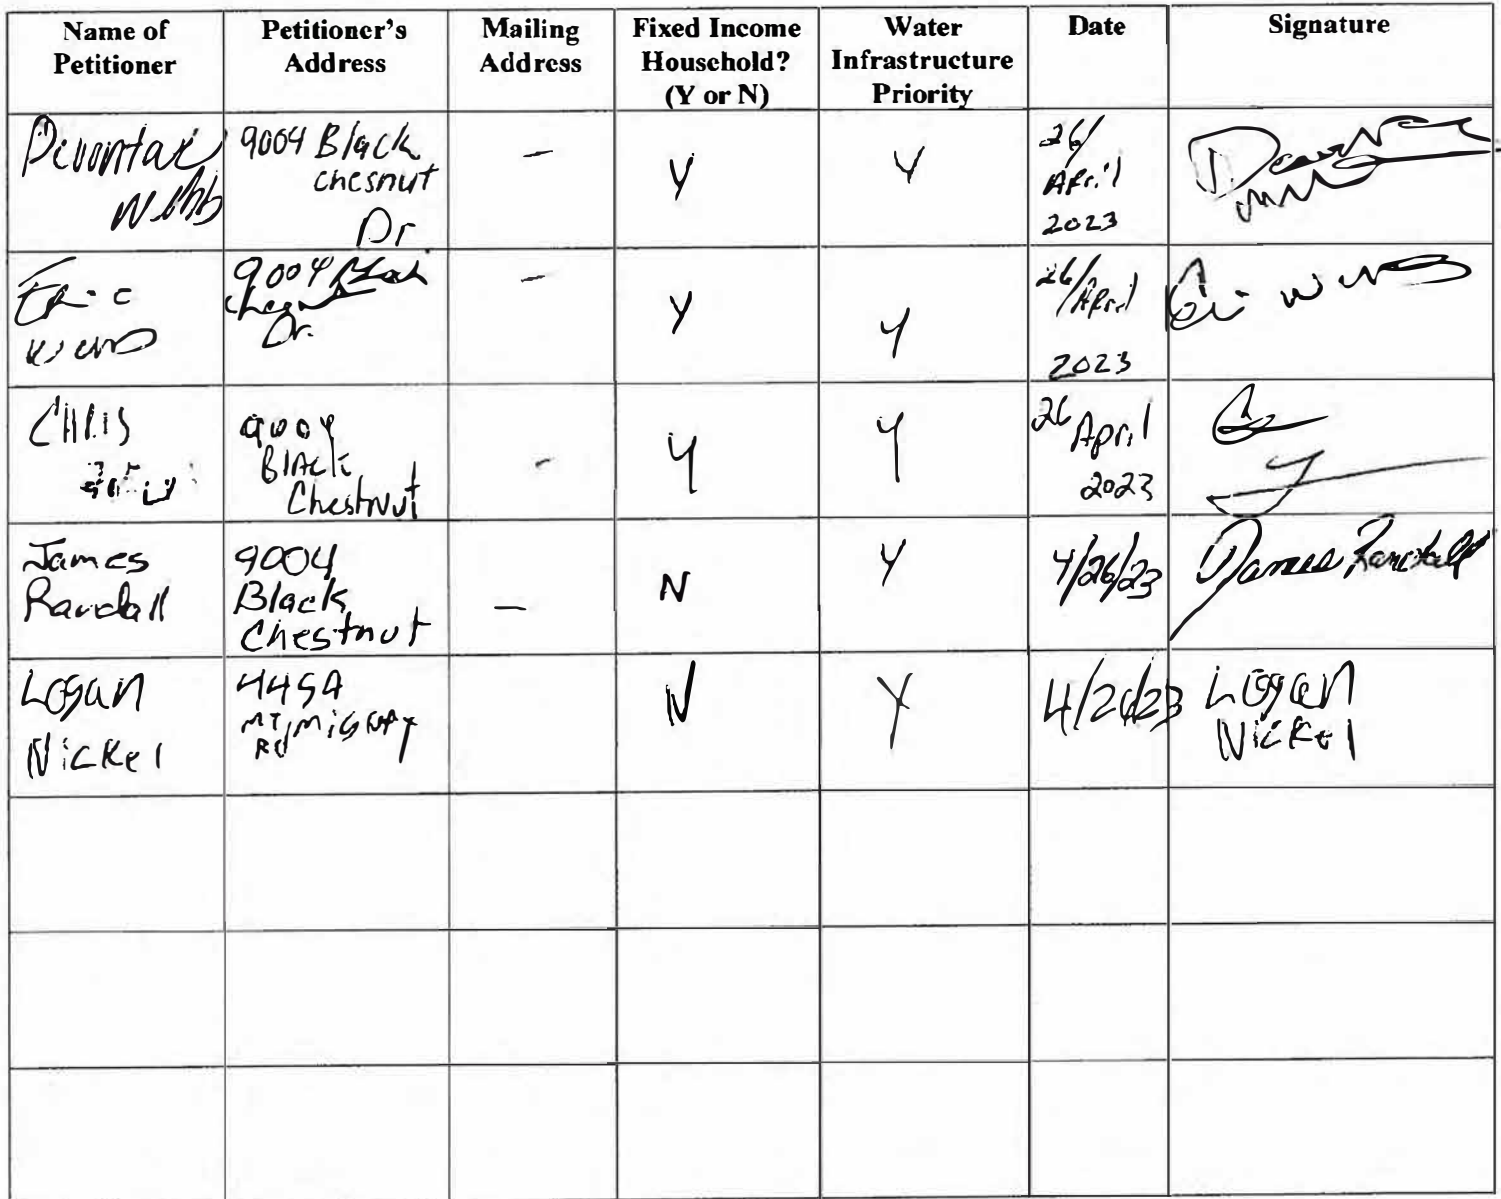 Name of Petitioner
Petitioner's Address
Mailing Address
Fixed Income Household? (Y or N)
Water Infrastructure Priority
Date
Signature
Devontae
Webb
9004 Black
chesnut
Dr
—
Y
Y
26/
April
2023
Eric
9004 Black
Dr.
—
Y
Y
26/April
2023
CHRIS
9004
Black
Chestnut
-
Y
Y
26 April
2023
James
Randall
9004
Black
Chestnut
—
N
Y
4/26/23
James Randall
Logan
Nickel
445A
Rd
N
Y
4/26/23
Logan
Nickel